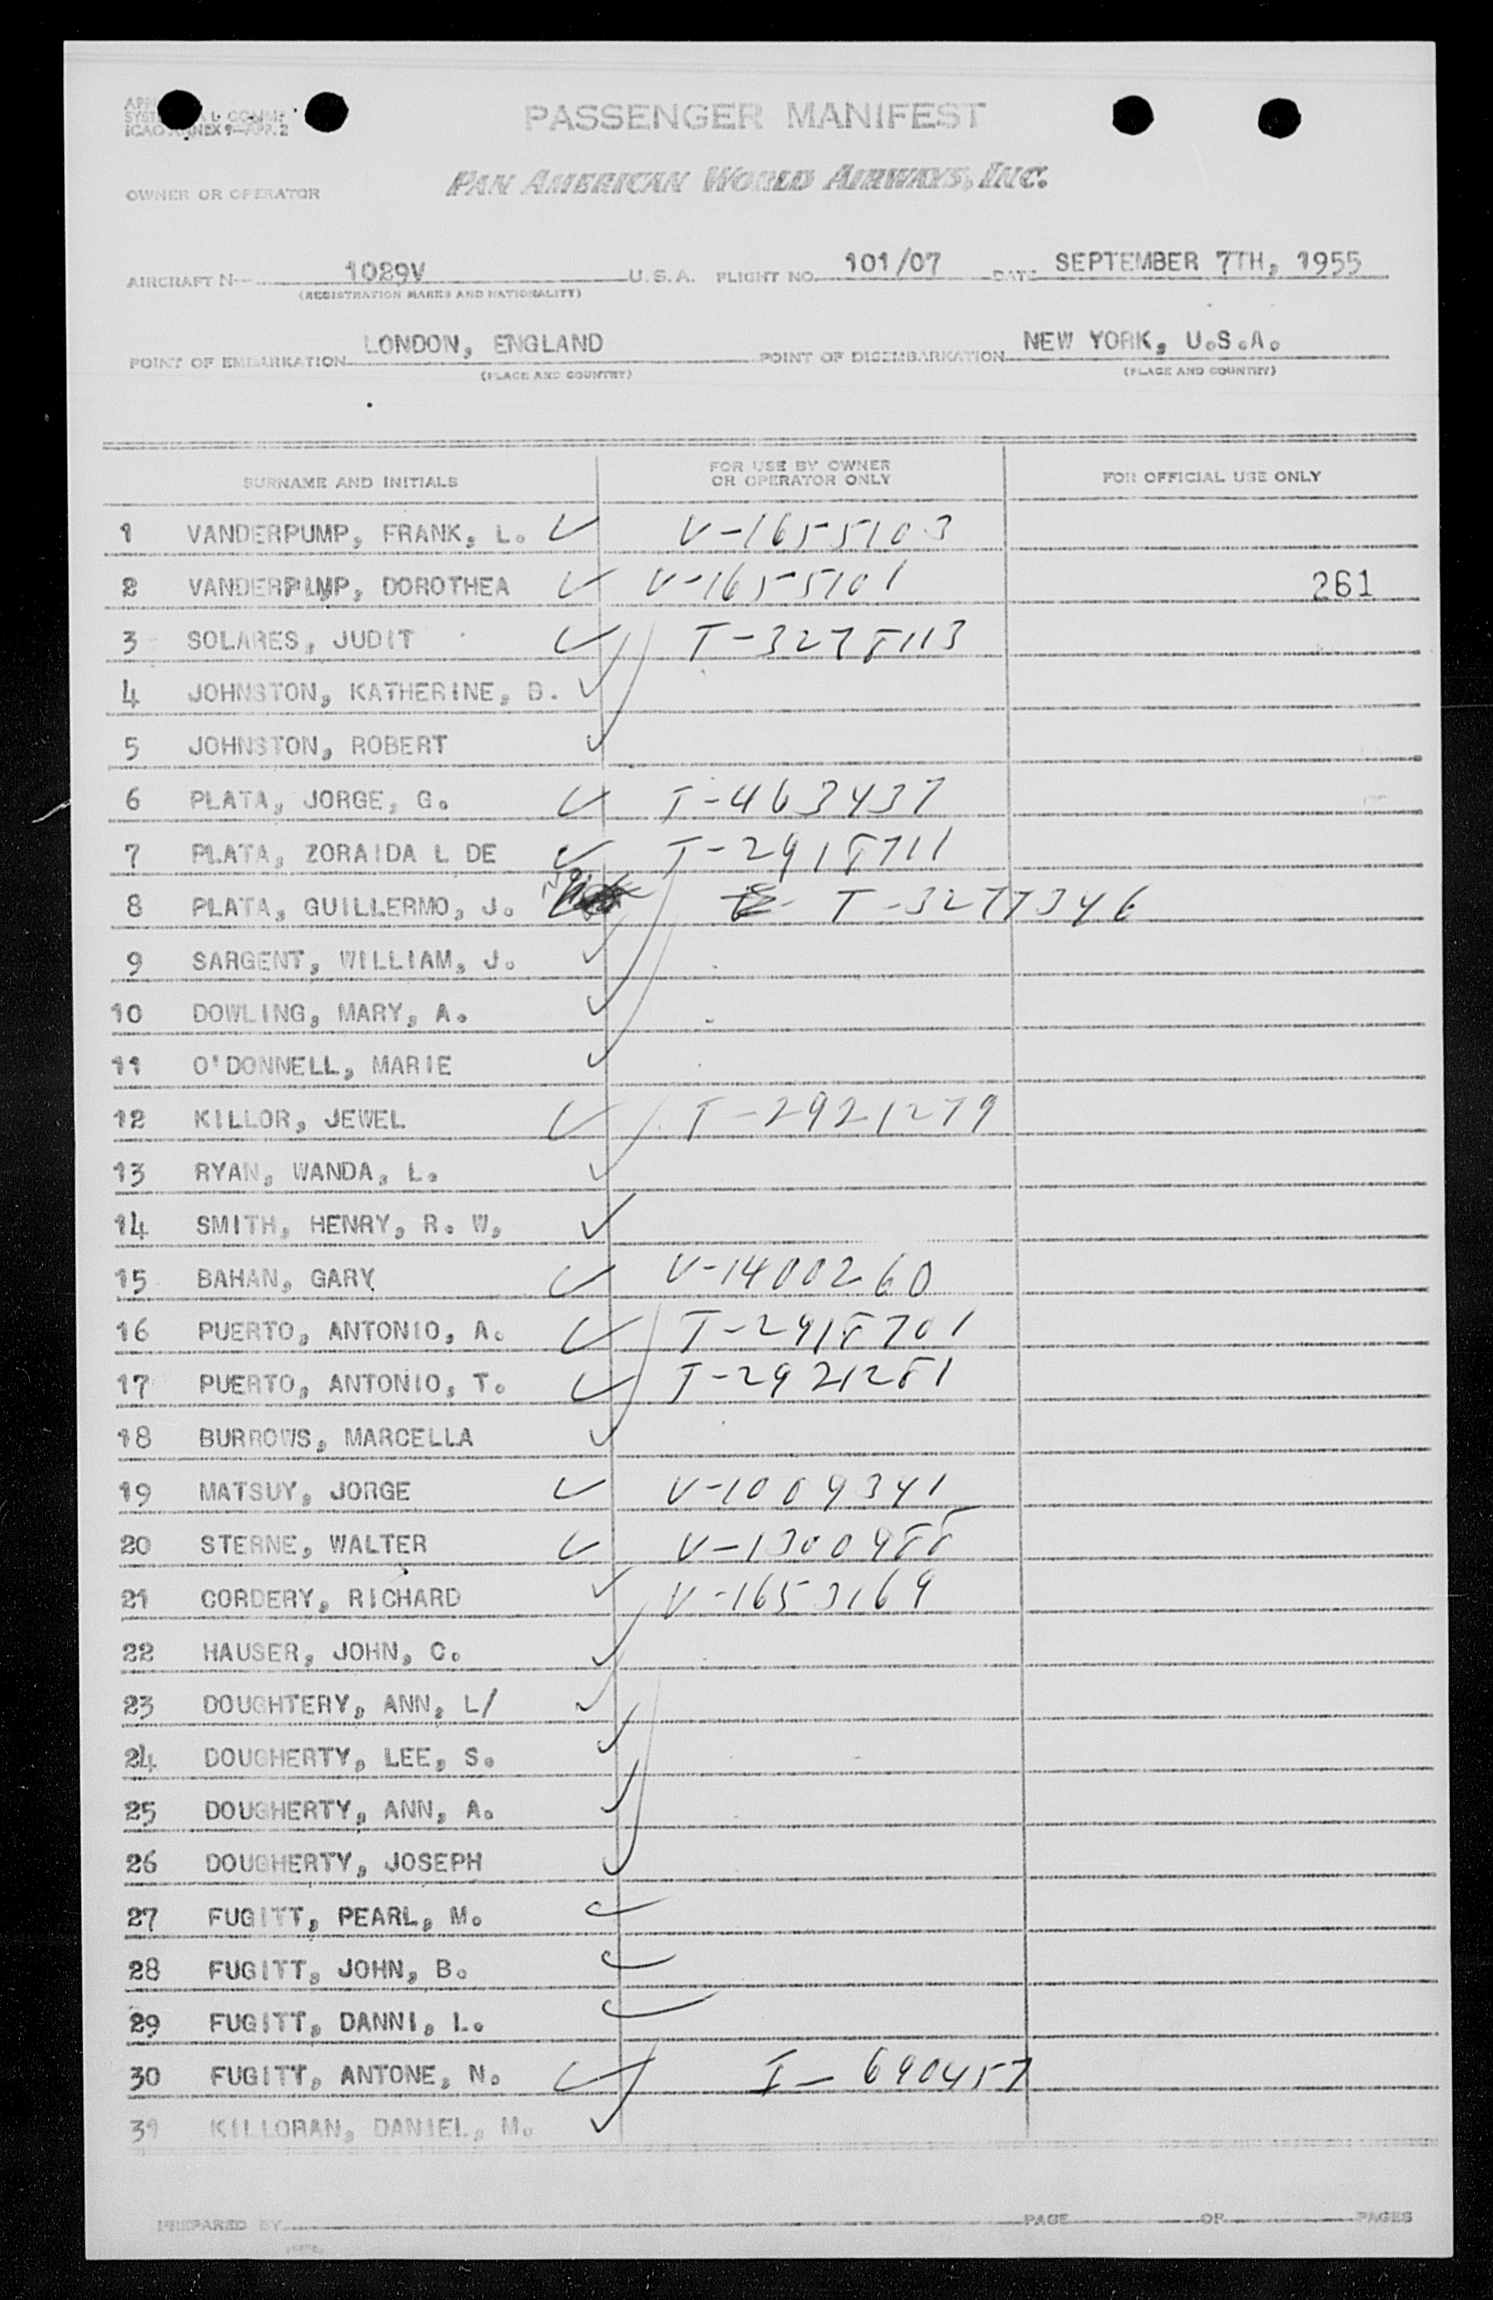 PASSENGER MANIFEST
ICAO ANNEX 9—APP. 2
OWNER OR OPERATOR PAN AMERICAN WORLD AIRWAYS, INC.
AIRCRAFT N— 1029V U.S.A. FLIGHT NO. 101/07 DATE SEPTEMBER 7TH, 1955
(REGISTRATION MARKS AND NATIONALITY)
POINT OF EMBARKATION LONDON, ENGLAND POINT OF DISEMBARKATION NEW YORK, U.S.A.
(PLACE AND COUNTRY) (PLACE AND COUNTRY)
SURNAME AND INITIALS FOR USE BY OWNER OR OPERATOR ONLY FOR OFFICIAL USE ONLY
1 VANDERPUMP, FRANK, L. V-1655103
2 VANDERPUMP, DOROTHEA V-1655101 261
3 SOLARES, JUDIT T-3278113
4 JOHNSTON, KATHERINE, B.
5 JOHNSTON, ROBERT
6 PLATA, JORGE, G. T-463437
7 PLATA, ZORAIDA L DE T-2918711
8 PLATA, GUILLERMO, J. T-3277346
9 SARGENT, WILLIAM, J.
10 DOWLING, MARY, A.
11 O'DONNELL, MARIE
12 KILLOR, JEWEL T-2921279
13 RYAN, WANDA, L.
14 SMITH, HENRY, R. W,
15 BAHAN, GARY V-1400260
16 PUERTO, ANTONIO, A. T-2918701
17 PUERTO, ANTONIO, T. T-2921281
18 BURROWS, MARCELLA
19 MATSUY, JORGE V-1009341
20 STERNE, WALTER V-1300988
21 CORDERY, RICHARD V-1653169
22 HAUSER, JOHN, C.
23 DOUGHTERY, ANN, L/
24 DOUGHERTY, LEE, S.
25 DOUGHERTY, ANN, A.
26 DOUGHERTY, JOSEPH
27 FUGITT, PEARL, M.
28 FUGITT, JOHN, B.
29 FUGITT, DANNI, L.
30 FUGITT, ANTONE, N. I-690457
31 KILLORAN, DANIEL, M.
PREPARED BY PAGE OF PAGES